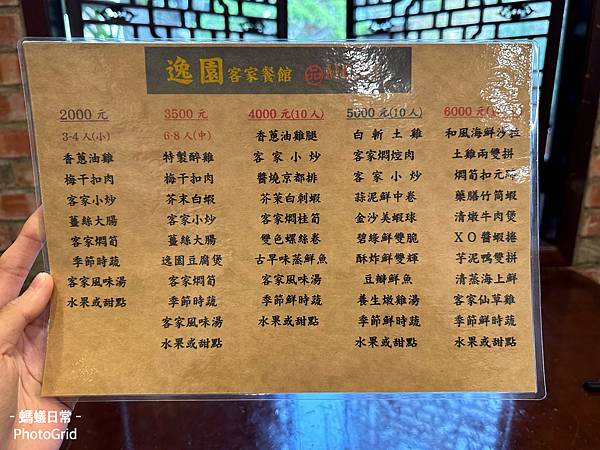 逸園客家餐館
2000 元
3-4人(小)
香蔥油雞
梅干扣肉
客家小炒
薑絲大腸
客家燜筍
季節時蔬
客家風味湯
水果或甜點
3500 元
6-8人(中)
特製醉雞
梅干扣肉
芥末白蝦
客家小炒
薑絲大腸
逸園豆腐煲
客家燜筍
季節時蔬
客家風味湯
水果或甜點
4000 元(10人)
香蔥油雞腿
客家小炒
醬燒京都排
芥茉白刺蝦
客家燜桂筍
雙色螺絲卷
古早味蒸鮮魚
客家風味湯
季節鮮時蔬
水果或甜點
5000 元(10人)
白斬土雞
客家燜焢肉
客家小炒
蒜泥鮮中卷
金沙美蝦球
碧綠鮮雙脆
酥炸鮮雙輝
豆瓣鮮魚
養生燉雞湯
季節鮮時蔬
水果或甜點
6000 元
和風海鮮沙拉
土雞兩雙拼
燜筍扣元
藥膳竹筒蝦
清燉牛肉煲
XO醬蝦捲
芋泥鴨雙拼
清蒸海上鮮
客家仙草雞
季節鮮時蔬
水果或甜點
- 螞蟻日常 -
PhotoGrid